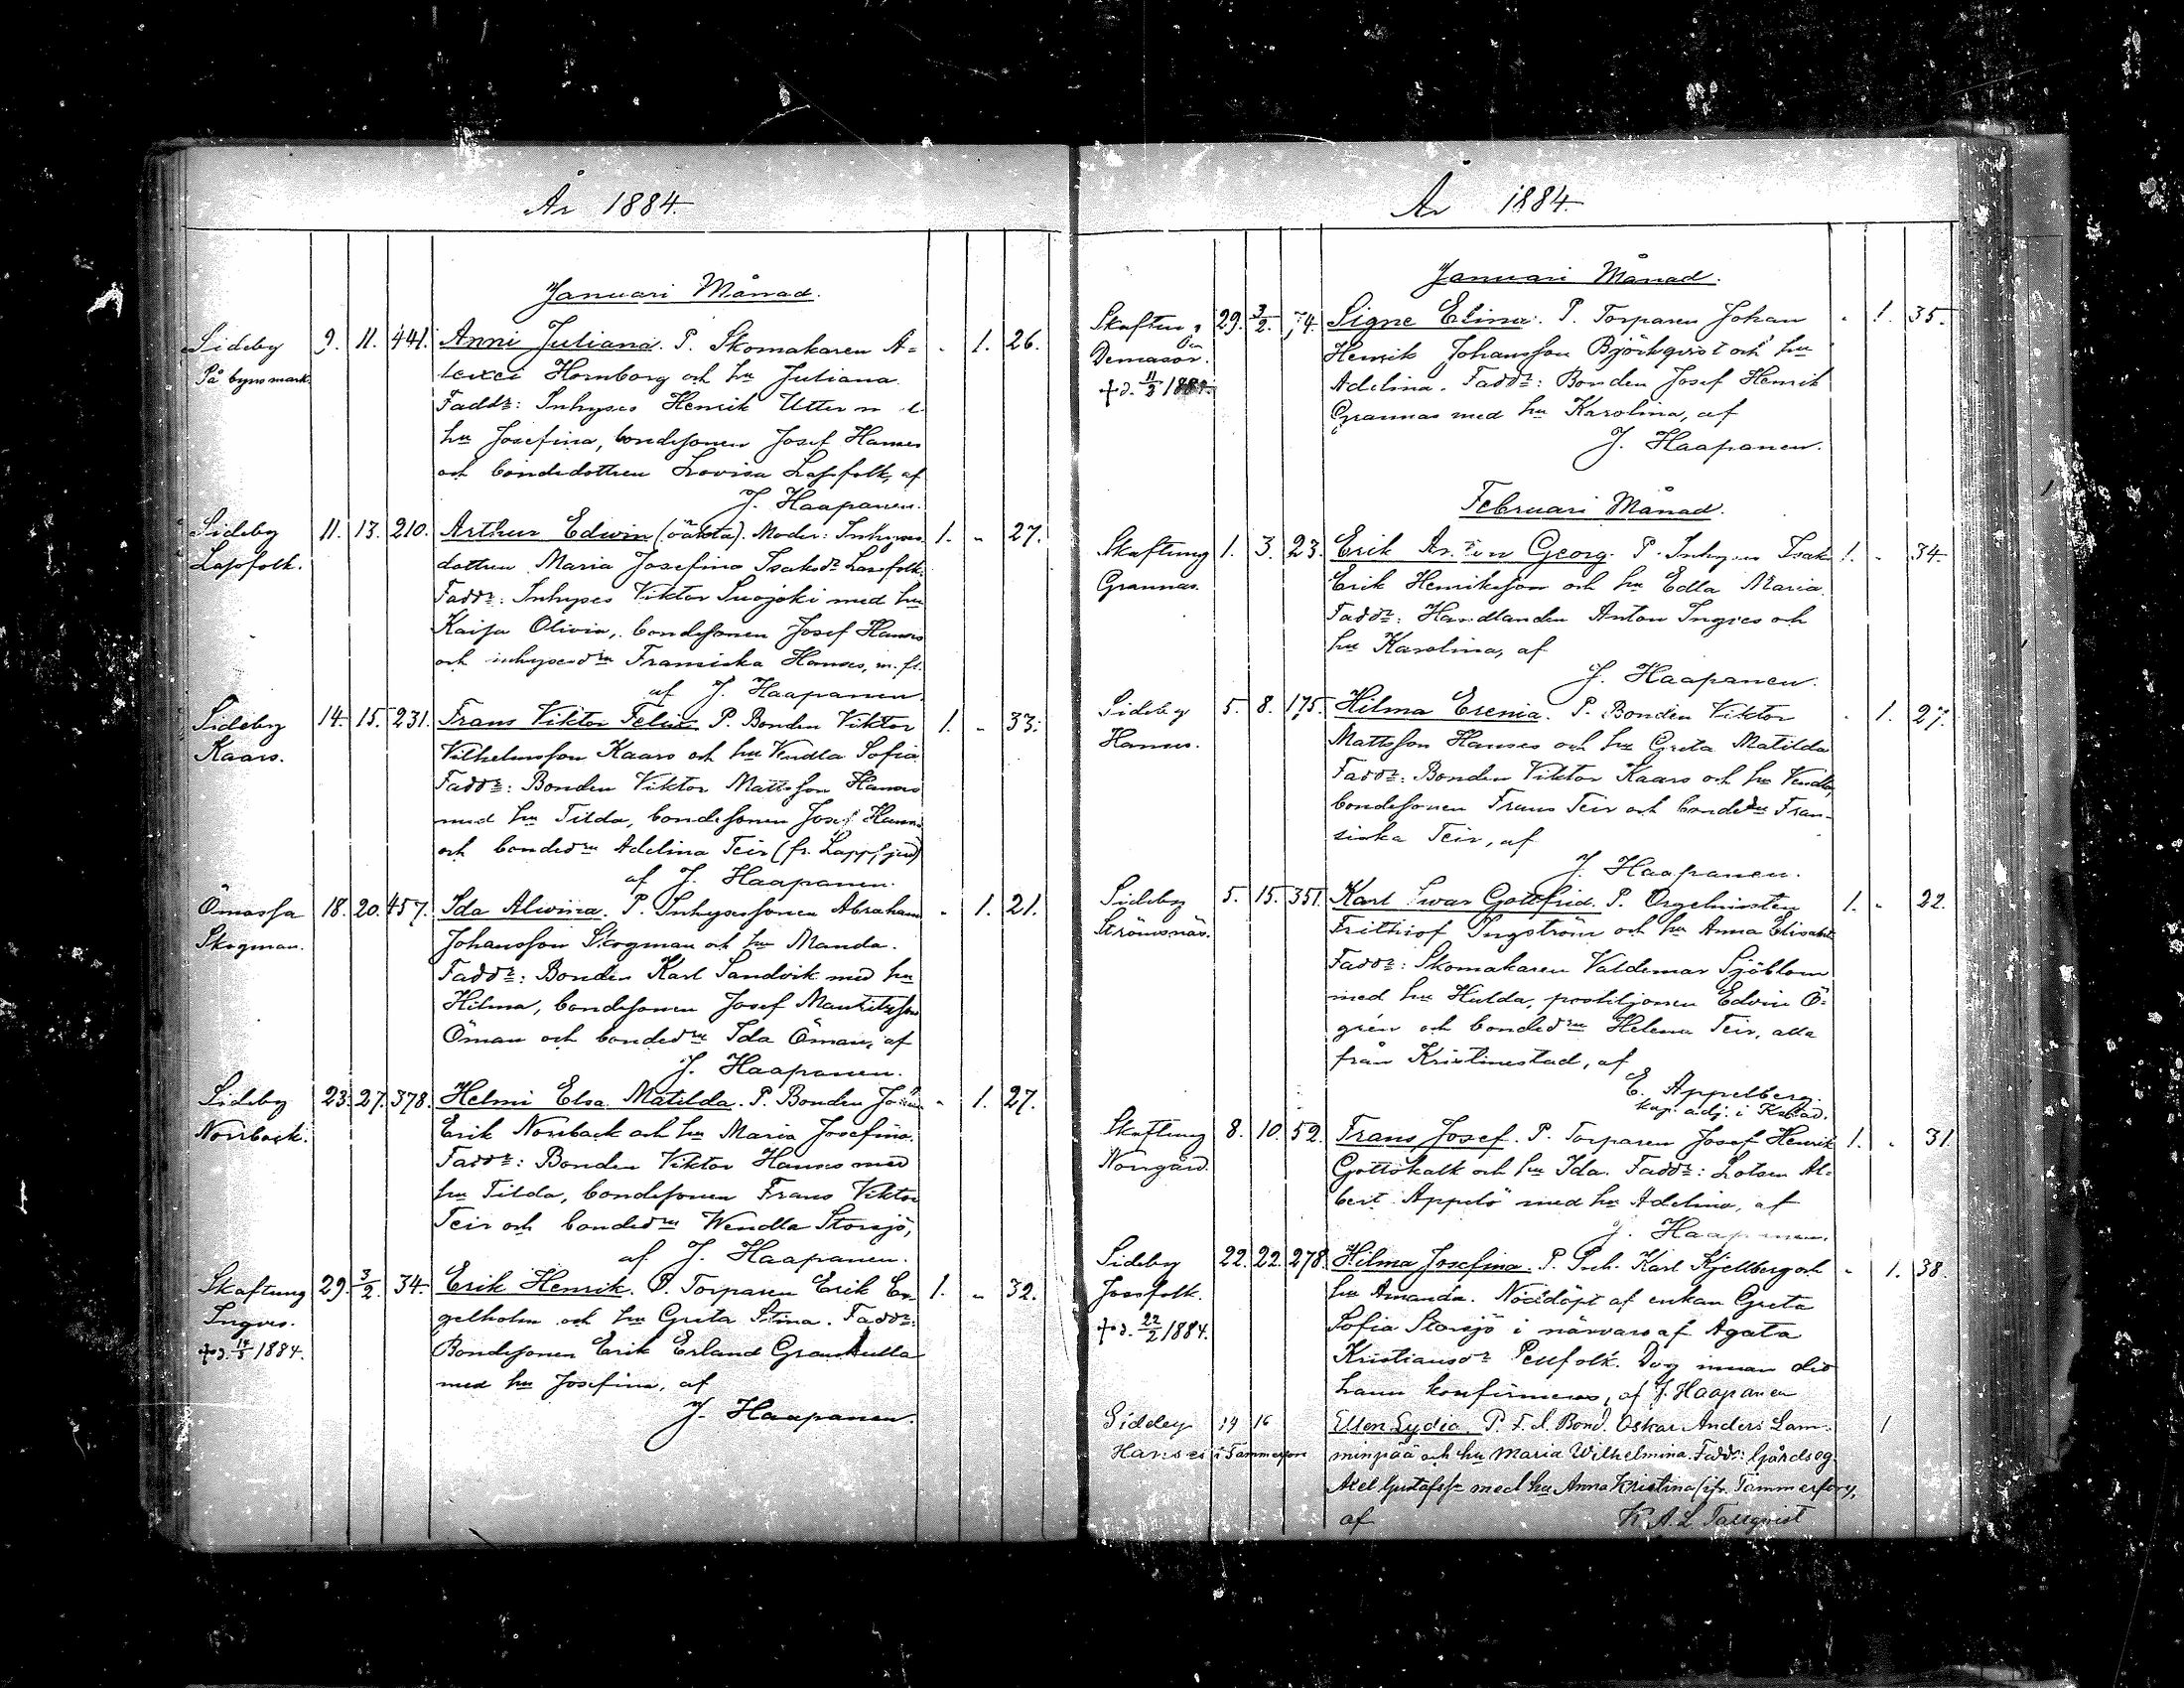 År 1884.
Januari Månad.
Sideby 9. 11. 441. Anni Juliana. P. Skomakaren A= " 1. 26.
På byns mark. lexei Hornborg och hu Juliana.
Faddr: Inhyses Henrik Utter m
hu Josefina, bondesonen Josef Hannes
och bondedottren Lovisa Lassfolk, af
J. Haapanen.
Sideby 11. 13. 210. Arthur Edwin (oäkta). Moder: Inhyses 1. " 27.
Lassfolk. dottren Maria Josefina Isaksdr Lassfolk.
Faddr: Inhyses Viktor Suojoki med hu
Kajsa Olivia, bondesonen Josef Hannes
och inhysesdrn Fransiska Hannes, m. fl.
af J. Haapanen.
Sideby 14. 15. 231. Frans Viktor Felix. P. Bonden Viktor 1. " 33.
Kaars. Vilhelmsson Kaars och hu Vendla Sofia
Faddr: Bonden Viktor Mattsson Hannes
med hu Tilda, bondesonen Josef Hannes
och bondedrn Adelina Teir (fr. Lappfjerd)
af J. Haapanen.
Ömossa 18. 20. 457. Ida Alwina. P. Inhysessonen Abraham " 1. 21.
Skogman. Johansson Skogman och hu Manda.
Faddr: Bonden Karl Sandvik med hu
Hilma, bondesonen Josef Mauritzson
Öman och bondedrn Ida Öman, af
J. Haapanen.
Sideby 23. 27. 378. Helmi Elsa Matilda. P. Bonden " 1. 27.
Norrback. Erik Norrback och hu Maria Josefina.
Faddr: Bonden Viktor Hannes med
hu Tilda, bondesonen Frans Viktor
Teir och bondedrn Wendla Storsjö,
af J. Haapanen.
Skaftung 29. 3/2. 34. Erik Henrik. P. Torparen Erik En- 1. " 32.
Ingves. gelholm och hu Greta Stina. Faddr:
1884. Bondesonen Erik Erland Grankulla
med hu Josefina, af
J. Haapanen.
År 1884.
Januari Månad.
29. 3/2. 74. Signe Elina. P. Torparen Johan " 1. 35.
Henrik Johansson Björkqvist och hu
Adelina. Faddr: Bonden Josef Henrik
Grannas med hu Karolina, af
J. Haapanen.
Februari Månad.
Skaftung 1. 3. 23. Erik Georg. P. Inhyses Isak 1. " 34.
Grannas. Erik Henriksson och hu Edla Maria.
Faddr: Handlanden Anton Ingves och
hu Karolina, af
J. Haapanen.
Sideby 5. 8. 175. Hilma Erenia. P. Bonden Viktor " 1. 27.
Hannes. Mattsson Hannes och hu Greta Matilda
Faddr: Bonden Viktor Kaars och hu Vendla,
bondesonen Frans Teir och bondedrn Fran-
siska Teir, af
J. Haapanen.
Sideby 5. 15. 351. Karl Iwar Gottfrid. P. Orgelnisten 1. " 22.
Strömsnäs. Frithiof Ingström och hu Anna Elisabet
Faddr: Skomakaren Valdemar Sjöblom
med hu Hulda, postiljonen Edvin Ö-
grén och bondedrn Helena Teir, alla
från Kristinestad, af
E. Appelberg.
kap. adj. i K:stad.
Skaftung 8. 10. 52. Frans Josef. P. Torparen Josef Henrik 1. " 31.
Norrgård. Gottskalk och hu Ida. Faddr: Lotsen Al-
bert Appelö med hu Adelina, af
J. Haapanen.
Sideby 22. 22. 278. Hilma Josefina. P. Inh. Karl Kjellberg och " 1. 38.
Jossfolk. hu Amanda. Nöddöpt af enkan Greta
†d. 22/2 1884. Sofia Storsjö i närvaro af Agata
Kristiansdr Pellfolk. Dog innan dop
hann konfirmeras, af J. Haapanen
Sideby 14 16 Ellen Lydia. P. F.d. Bond. Oskar Anders Lam- 1
Hannes i Tammerfors minpää och hu Maria Wilhelmina. Faddr: Gårdseg.
Axel Gustafss. med hu Anna Kristina (fr. Tammerfors),
af K. A. L. Tallqvist